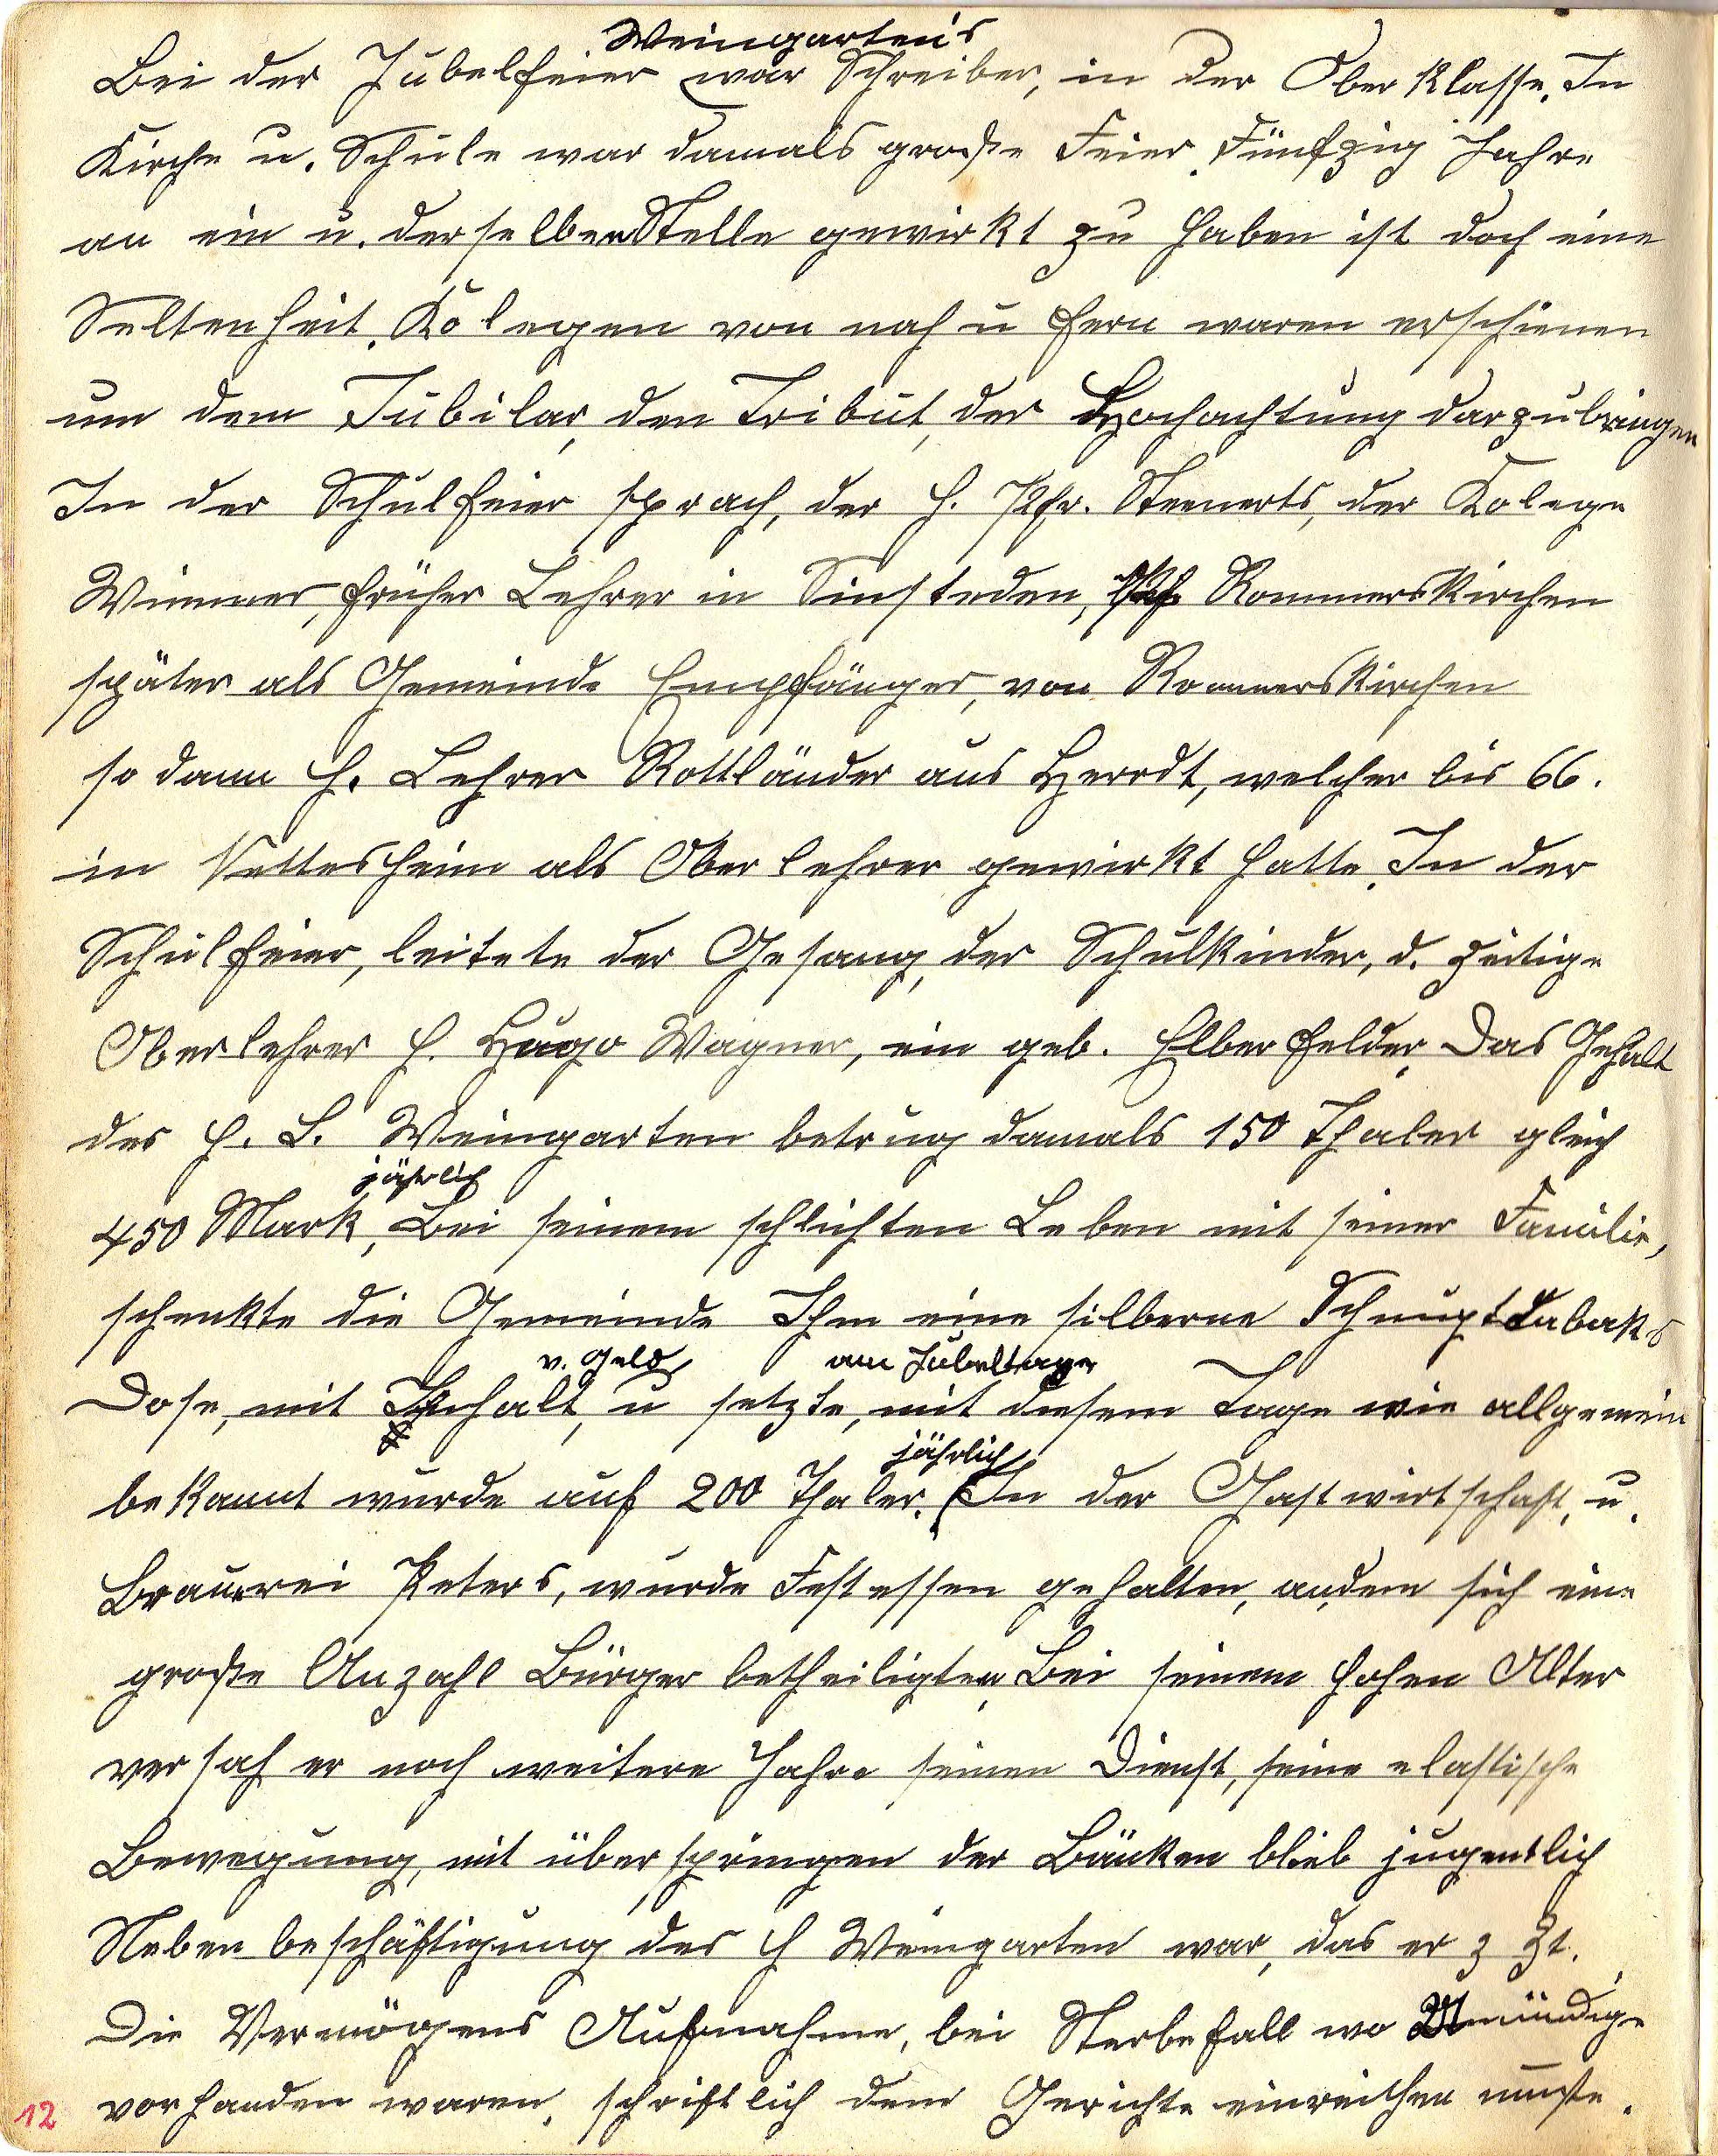 Weingarten's
Bei der Jubelfeier war Schreiber, in der Ober Klasse. In
Kirche u. Schule war damals große Feier. Fünfzig Jahre
an ein u. derselben Stelle gewirkt zu haben ist doch eine
Seltenheit. Kolegen von nah u fern waren erschienen
um dem Jubilar, den Tribut, der Hochachtung darzubringen
In der Schulfeier sprach, der H. Pfr. Steenerts, der Kolege
Wimmer, früher Lehrer in Sinsteden, Rommerskirchen
später als Gemeinde Empfänger, von Rommerskirchen
so dann H. Lehrer Rottländer aus Herrdt, welcher bis 66.
in Nettesheim als Oberlehrer gewirkt hatte. In der
Schulfeier, leitete der Gesang, der Schulkinder, d. zeitige
Oberlehrer H. Hugo Wagner, ein geb. Elberfelder. Das Gehalt
des H. L. Weingarten betrug damals 150 Thaler gleich
jährlich
450 Mark, Bei seinem schlichten Leben mit seiner Familie,
schenkte die Gemeinde Ihm eine silberne Schnupftabaks
v. Geld am Jubeltage
Dose, mit Inhalt, u setzte, mit diesem Tage wie allgemein
jährlich
bekannt wurde auf 200 Thaler. (In der Gastwirtschaft, u.
Brauerei Peters, wurde Festessen gehalten, andem sich eine
große Anzahl Bürger betheiligten. Bei seinem hohen Alter
versah er noch weitere Jahre seinen Dienst, seine elastische
Bewegung, mit überspringen der Bänken blieb jugentlich
Nebenbeschäftigung des H Weingarten war, das er z Zt.
Die Vermögens Aufnahme, bei Sterbefall wo Unmündige
vorhanden waren, schriftlich dem Gerichte einreichen mußte.
12